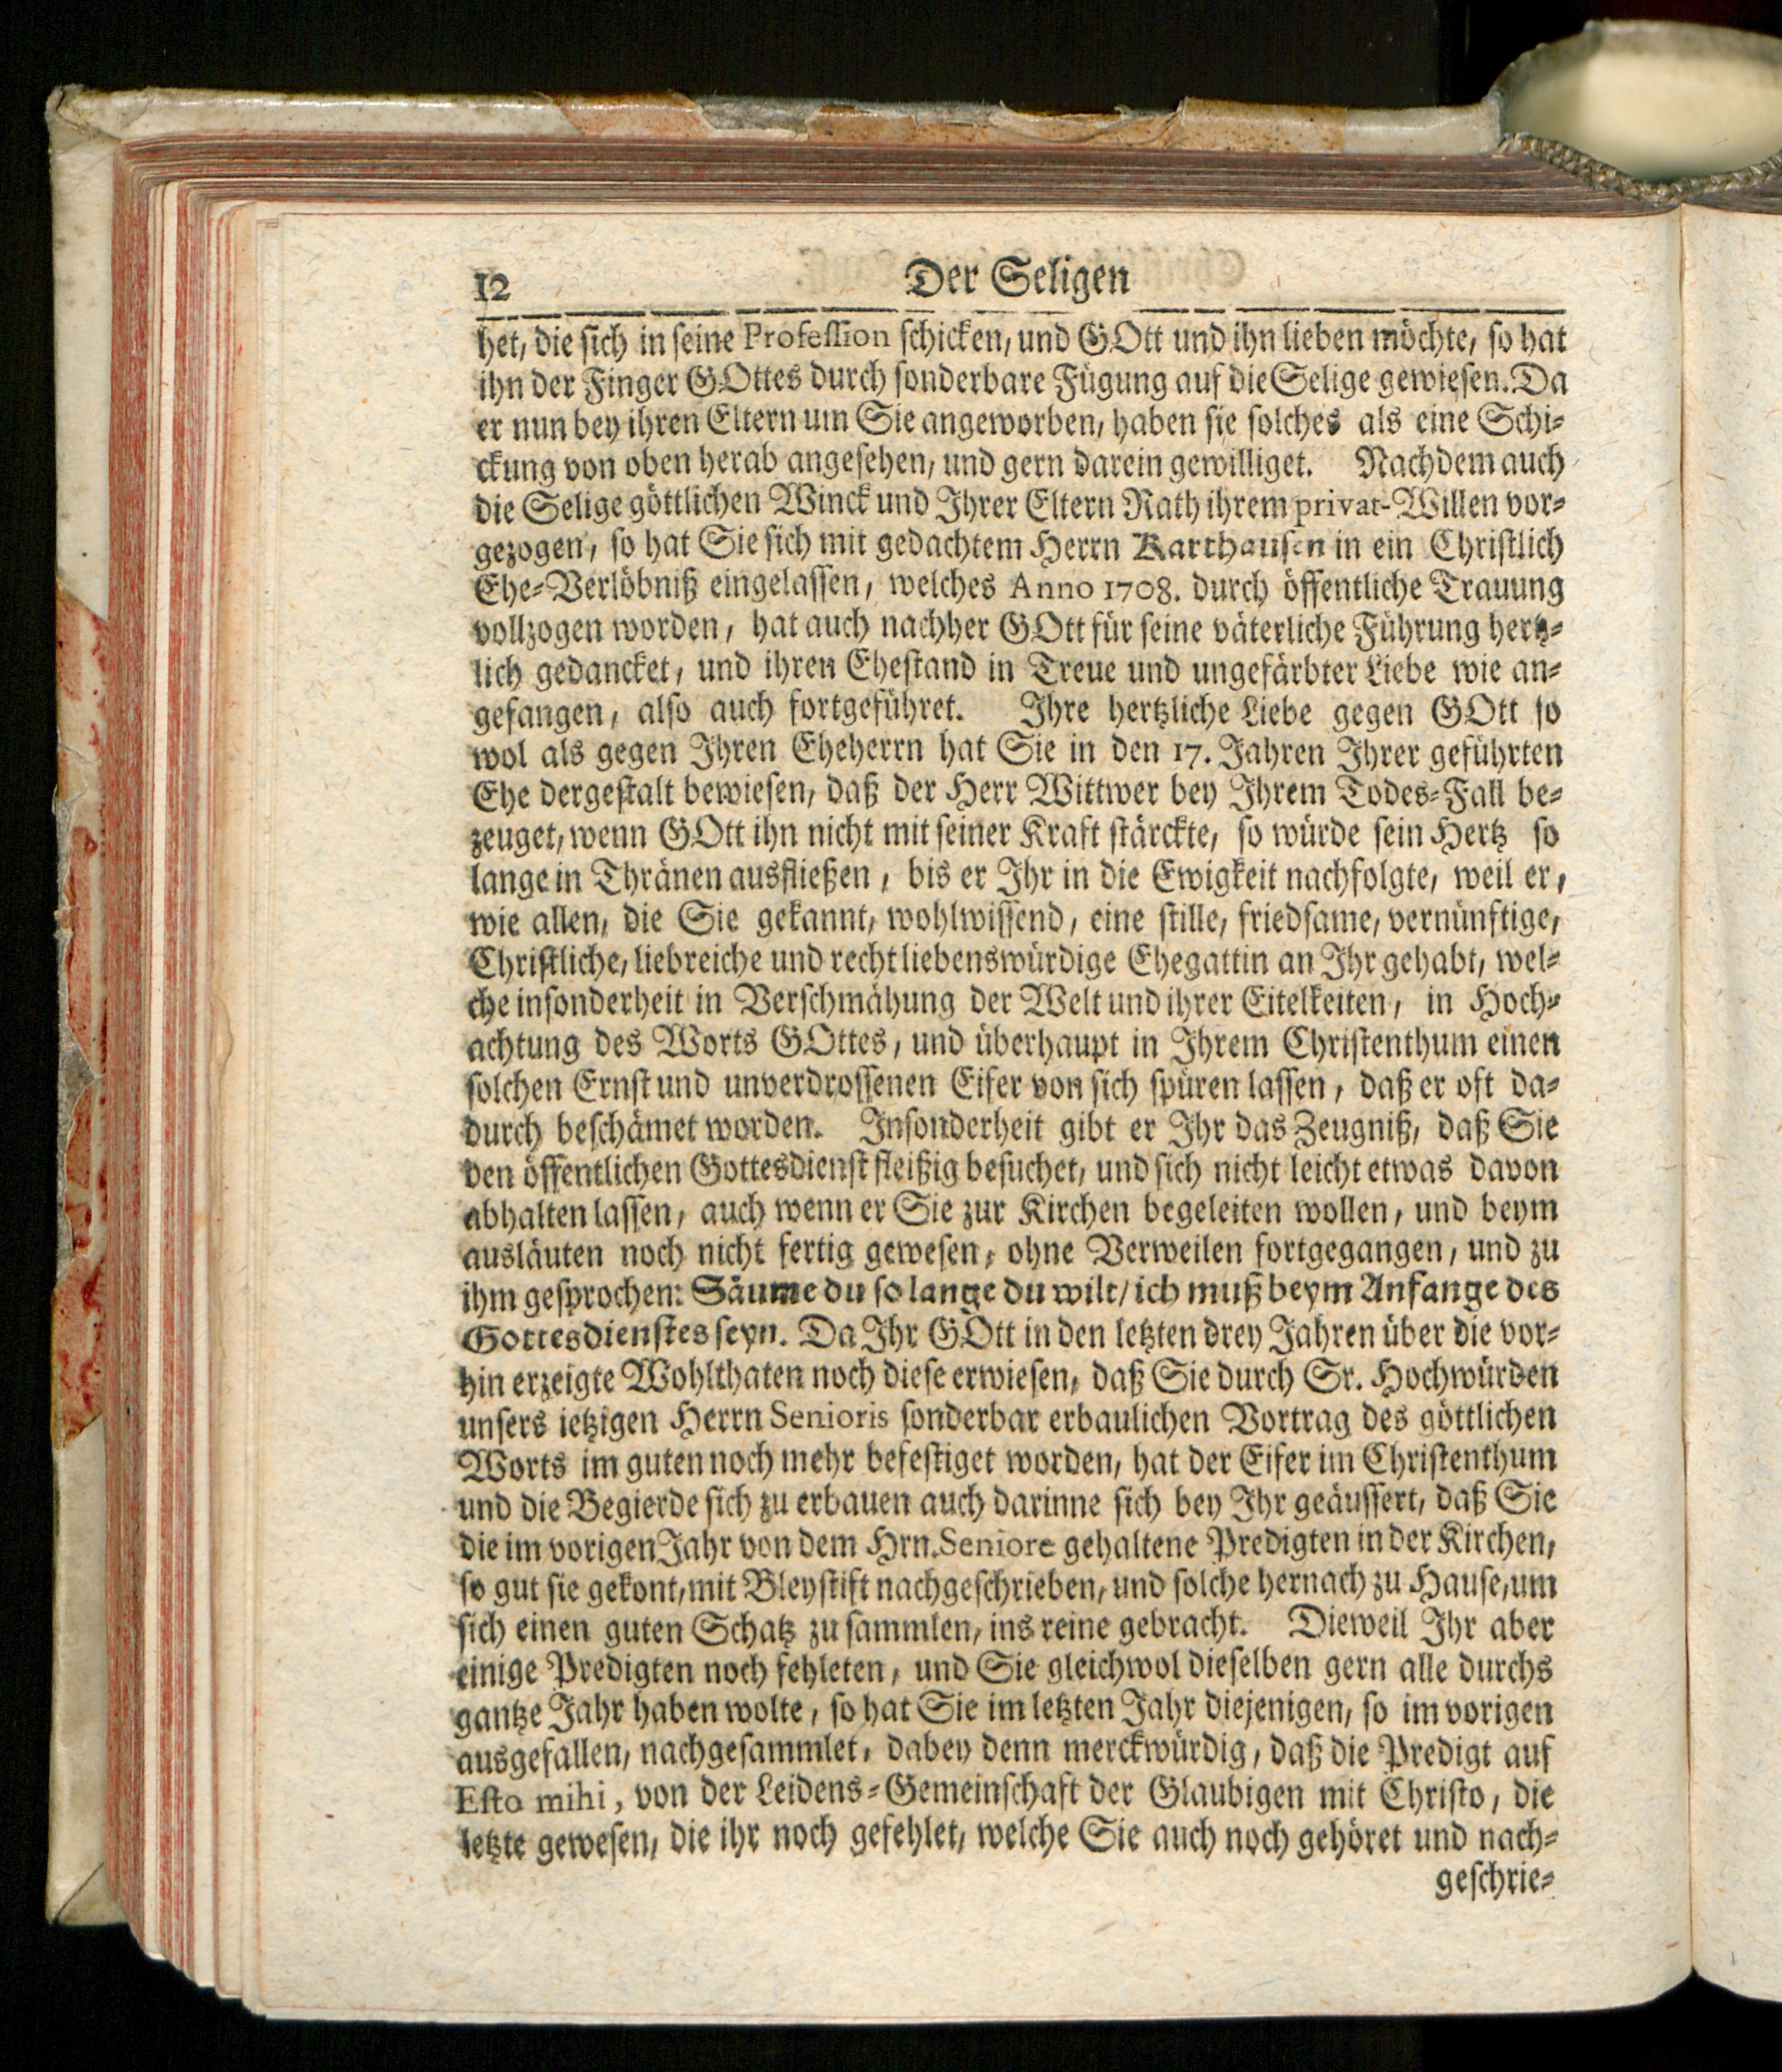 12 Der Seligen
het, die sich in seine Profession schicken, und GOtt und ihn lieben möchte, so hat
ihn der Finger GOttes durch sonderbare Fügung auf die Selige gewiesen. Da
er nun bey ihren Eltern um Sie angeworben, haben sie solches als eine Schi-
ckung von oben herab angesehen, und gern darein gewilliget. Nachdem auch
die Selige göttlichen Winck und Ihrer Eltern Rath ihrem privat-Willen vor-
gezogen, so hat Sie sich mit gedachtem Herrn Karthausen in ein Christlich
Ehe-Verlöbniß eingelassen, welches Anno 1708. durch öffentliche Trauung
vollzogen worden, hat auch nachher GOtt für seine väterliche Führung hertz-
lich gedancket, und ihren Ehestand in Treue und ungefärbter Liebe wie an-
gefangen, also auch fortgeführet. Ihre hertzliche Liebe gegen GOtt so
wol als gegen Ihren Eheherrn hat Sie in den 17. Jahren Ihrer geführten
Ehe dergestalt bewiesen, daß der Herr Wittwer bey Ihrem Todes-Fall be-
zeuget, wenn GOtt ihn nicht mit seiner Kraft stärckte, so würde sein Hertz so
lange in Thränen ausfließen, bis er Ihr in die Ewigkeit nachfolgte, weil er,
wie allen, die Sie gekannt, wohlwissend, eine stille, friedsame, vernünftige,
Christliche, liebreiche und recht liebenswürdige Ehegattin an Ihr gehabt, wel-
che insonderheit in Verschmähung der Welt und ihrer Eitelkeiten, in Hoch-
achtung des Worts GOttes, und überhaupt in Ihrem Christenthum einen
solchen Ernst und unverdrossenen Eifer von sich spüren lassen, daß er oft da-
durch beschämet worden. Insonderheit gibt er Ihr das Zeugniß, daß Sie
den öffentlichen Gottesdienst fleißig besuchet, und sich nicht leicht etwas davon
abhalten lassen, auch wenn er Sie zur Kirchen begeleiten wollen, und beym
ausläuten noch nicht fertig gewesen, ohne Verweilen fortgegangen, und zu
ihm gesprochen: Säume du so lange du wilt/ ich muß beym Anfange des
Gottesdienstes seyn. Da Ihr GOtt in den letzten drey Jahren über die vor-
hin erzeigte Wohlthaten noch diese erwiesen, daß Sie durch Sr. Hochwürden
unsers ietzigen Herrn Senioris sonderbar erbaulichen Vortrag des göttlichen
Worts im guten noch mehr befestiget worden, hat der Eifer im Christenthum
und die Begierde sich zu erbauen auch darinne sich bey Ihr geäussert, daß Sie
die im vorigen Jahr von dem Hrn. Seniore gehaltene Predigten in der Kirchen,
so gut sie gekont, mit Bleystift nachgeschrieben, und solche hernach zu Hause, um
sich einen guten Schatz zu sammlen, ins reine gebracht. Dieweil Ihr aber
einige Predigten noch fehleten, und Sie gleichwol dieselben gern alle durchs
gantze Jahr haben wolte, so hat Sie im letzten Jahr diejenigen, so im vorigen
ausgefallen, nachgesammlet, dabey denn merckwürdig, daß die Predigt auf
Esto mihi, von der Leidens-Gemeinschaft der Glaubigen mit Christo, die
letzte gewesen, die ihr noch gefehlet, welche Sie auch noch gehöret und nach-
geschrie-